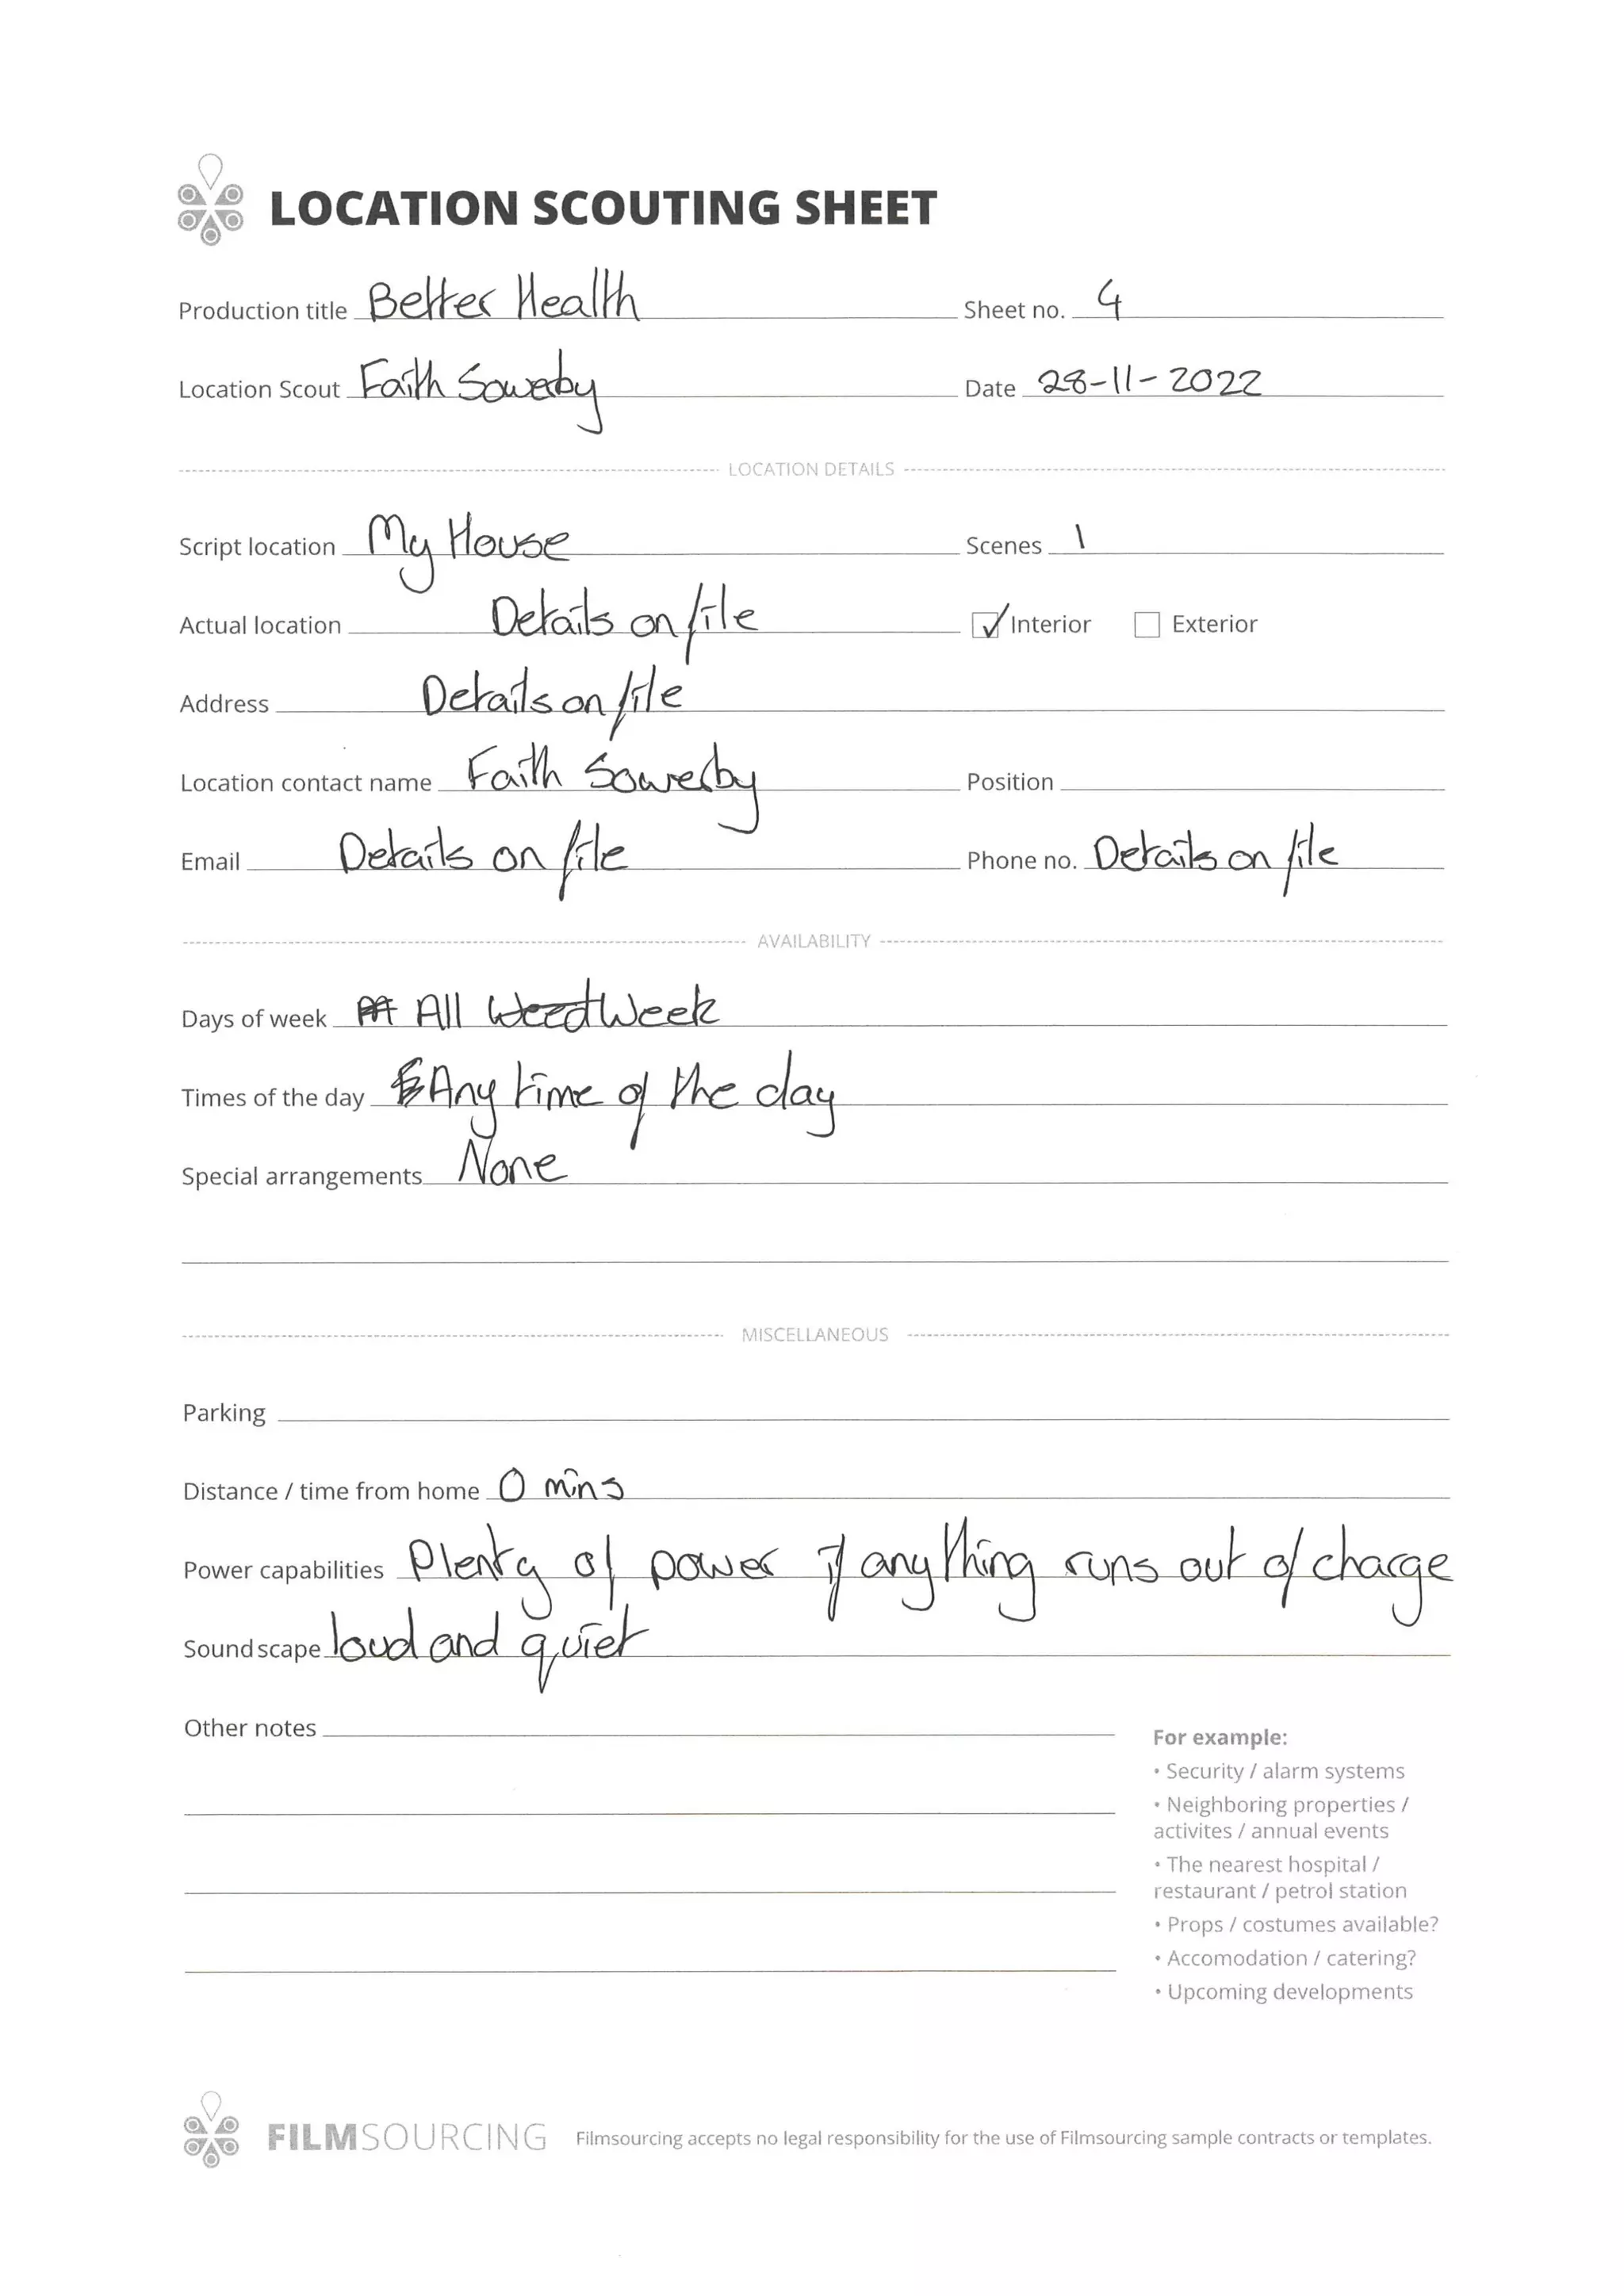 LOCATION SCOUTING SHEET
Production title Better Health Sheet no. 4
Location Scout Faith Sowerby Date 28-11-2022
LOCATION DETAILS
Script location My House Scenes 1
Actual location Details on file Interior Exterior
Address Details on file
Location contact name Faith Sowerby Position
Email Details on file Phone no. Details on file
AVAILABILITY
Days of week All Week
Times of the day Any time of the day
Special arrangements None
MISCELLANEOUS
Parking
Distance / time from home 0 mins
Power capabilities Plenty of power if anything runs out of charge
Sound scape loud and quiet
Other notes
For example:
• Security / alarm systems
• Neighboring properties /
activites / annual events
• The nearest hospital /
restaurant / petrol station
• Props / costumes available?
• Accomodation / catering?
• Upcoming developments
FILMSOURCING Filmsourcing accepts no legal responsibility for the use of Filmsourcing sample contracts or templates.